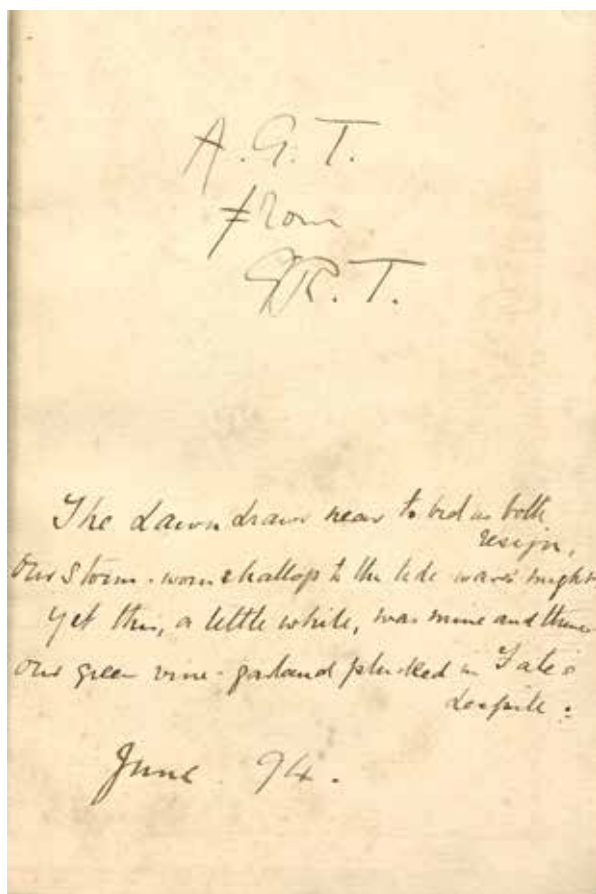 A.G.T.
from
G.R.T.
The dawn draws near to bid us both
resign,
Our storm-worn shallop to the tide wave's might
Yet this, a little while, was mine and thine
Our green vine-garland plucked in Fate's
despite:
June 94.